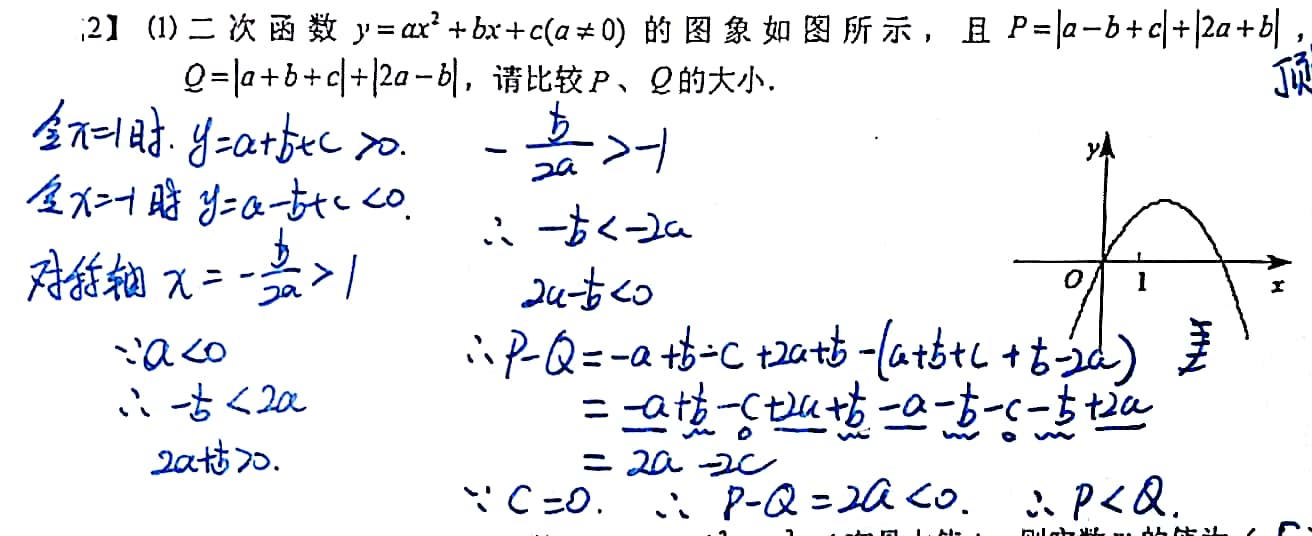 2】 (1) 二次函数 y=ax²+bx+c(a≠0) 的图象如图所示，且 P=|a−b+c|+|2a+b|，
Q=|a+b+c|+|2a−b|，请比较P、Q的大小.
顶
令x=1时. y=a+b+c >0.
令x=-1时 y=a-b+c <0.
对称轴 x = -b/2a > 1
∵a<0
∴ -b < 2a
2a+b>0.
-b/2a > -1
∴ -b < -2a
2a-b<0
∴ P-Q = -a+b-c+2a+b-(a+b+c+b-2a)
= -a+b-c+2a+b-a-b-c-b+2a
= 2a-2c
∵ C=0. ∴ P-Q=2a<0. ∴ P<Q.
y
O 1 x